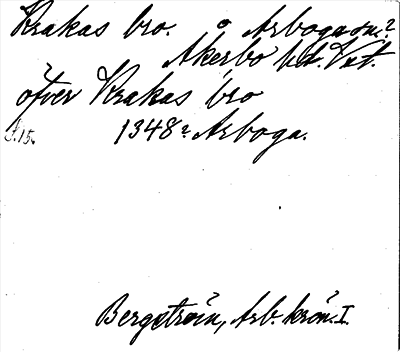 Krakas bro. Arboga sn.?
Åkerbo hd. Vstm.
öfver Krakas bro
s. 15. 1348? Arboga.
Bergström, Arb. krön. I.